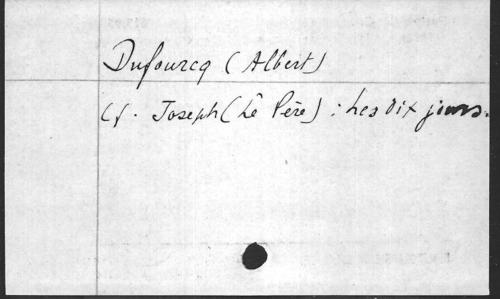 Dufourcq (Albert)
Cf. Joseph (Le Père) : Les Dix jours.